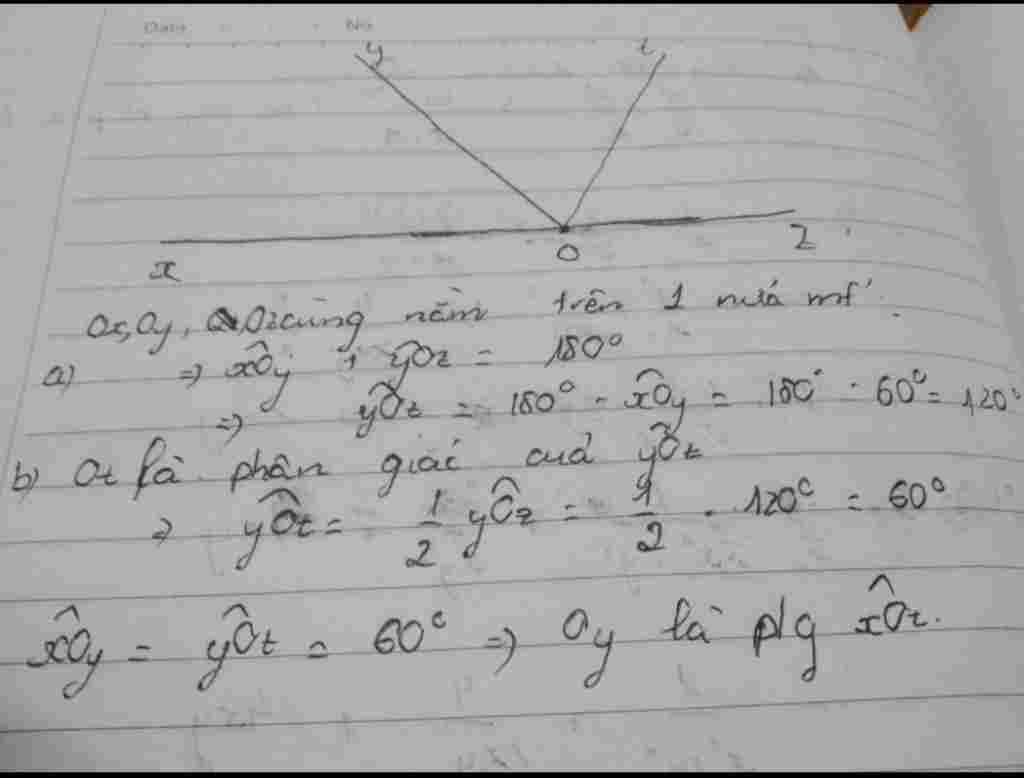 Date No
y t
x O z
Ox, Oy, Oz cùng nằm trên 1 nửa mf'.
a) => xÔy + yÔz = 180°
=> yÔz = 180° - xÔy = 180° - 60° = 120°
b) Ot là phân giác của yÔz
=> yÔt = 1/2 yÔz = 1/2 . 120° = 60°
xÔy = yÔt = 60° => Oy là p/g xÔt.